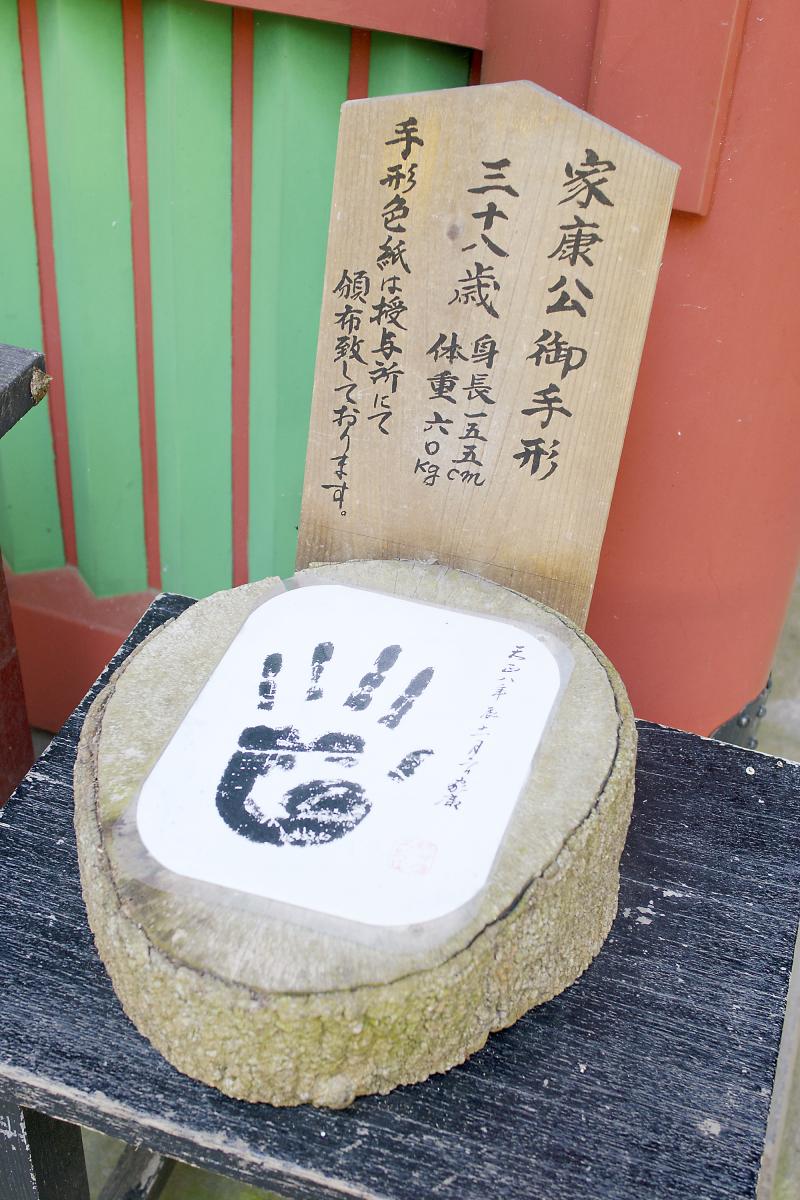 家康公御手形
三十八歳
身長一五五cm
体重六〇kg
手形色紙は授与所にて
頒布致しております。
天正八年辰